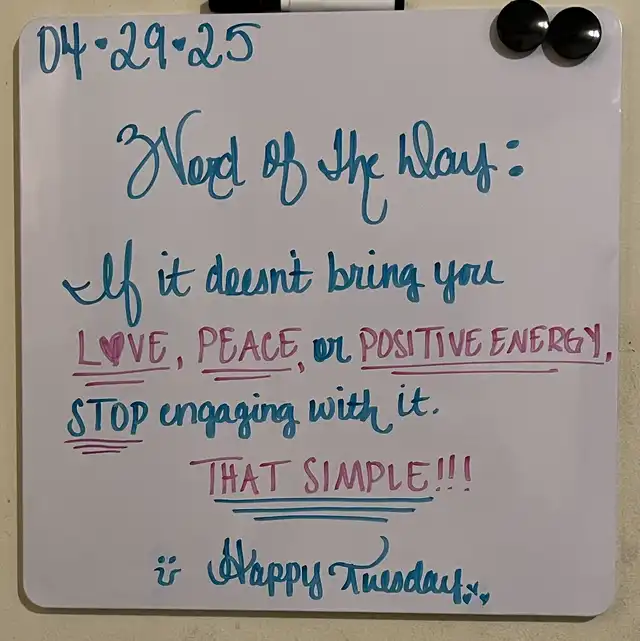 04•29•25
Word of the Day:
If it doesn't bring you
LOVE, PEACE, or POSITIVE ENERGY,
STOP engaging with it.
THAT SIMPLE!!!
Happy Tuesday